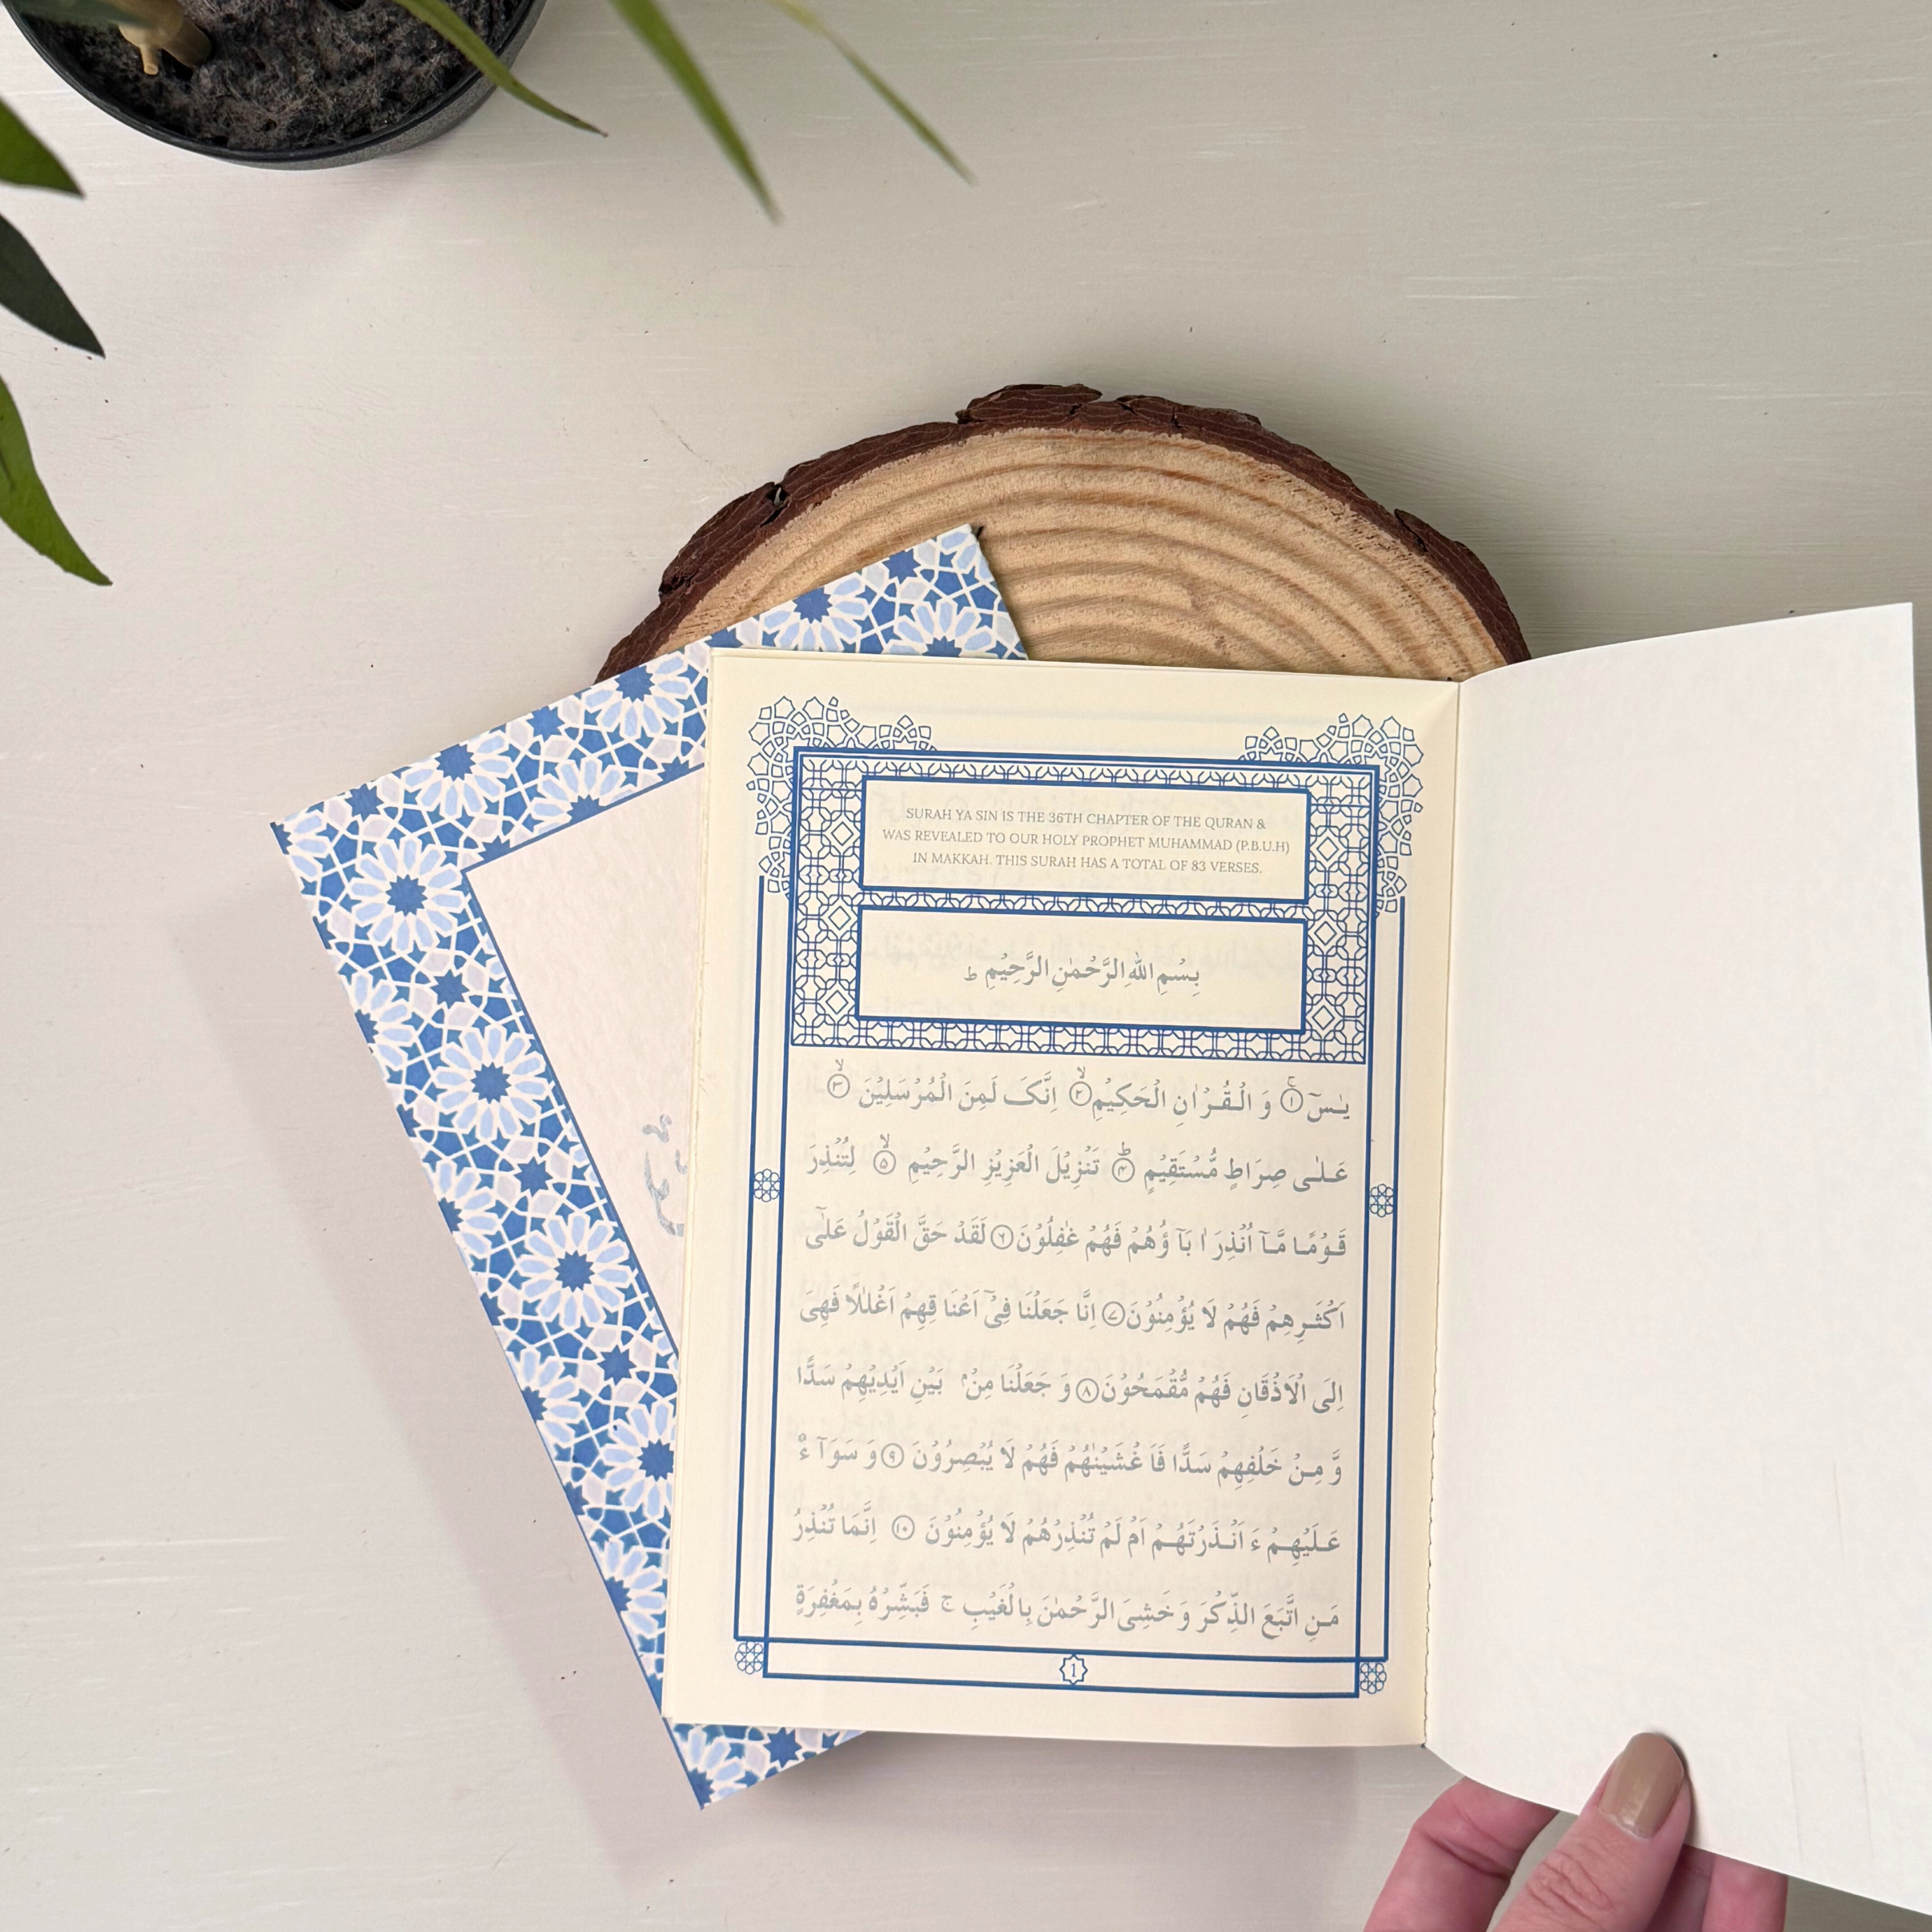 SURAH YA SIN IS THE 36TH CHAPTER OF THE QURAN &
WAS REVEALED TO OUR HOLY PROPHET MUHAMMAD (P.B.U.H)
IN MAKKAH. THIS SURAH HAS A TOTAL OF 83 VERSES.
بِسْمِ اللهِ الرَّحْمٰنِ الرَّحِيْمِ ط
يٰسٓ ۚ﴿۱﴾ وَ الْقُرْاٰنِ الْحَكِيْمِ ۙ﴿۲﴾ اِنَّکَ لَمِنَ الْمُرْسَلِيْنَ ۙ﴿۳﴾
عَلٰى صِرَاطٍ مُّسْتَقِيْمٍ ؕ﴿۴﴾ تَنْزِيْلَ الْعَزِيْزِ الرَّحِيْمِ ۙ﴿۵﴾ لِتُنْذِرَ
قَوْمًا مَّآ اُنْذِرَ اٰ بَآ ؤُهُمْ فَهُمْ غٰفِلُوْنَ ﴿۶﴾ لَقَدْ حَقَّ الْقَوْلُ عَلٰٓى
اَكْثَرِهِمْ فَهُمْ لَا يُؤْمِنُوْنَ ﴿۷﴾ اِنَّا جَعَلْنَا فِىْٓ اَعْنَا قِهِمْ اَغْلٰلًا فَهِىَ
اِلَى الْاَذْقَانِ فَهُمْ مُّقْمَحُوْنَ ﴿۸﴾ وَ جَعَلْنَا مِنْۢ بَيْنِ اَيْدِيْهِمْ سَدًّا
وَّ مِنْ خَلْفِهِمْ سَدًّا فَاَ غْشَيْنٰهُمْ فَهُمْ لَا يُبْصِرُوْنَ ﴿۹﴾ وَ سَوَآ ءٌ
عَلَيْهِمْ ءَ اَنْذَرْتَهُمْ اَمْ لَمْ تُنْذِرْهُمْ لَا يُؤْمِنُوْنَ ﴿۱۰﴾ اِنَّمَا تُنْذِرُ
مَنِ اتَّبَعَ الذِّكْرَ وَ خَشِىَ الرَّحْمٰنَ بِالْغَيْبِ ج فَبَشِّرْهُ بِمَغْفِرَةٍ
1